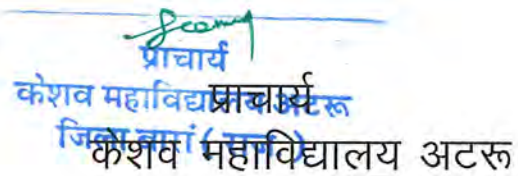 प्राचार्य
केशव महाविद्यालय अटरू
प्राचार्य
जिला बारां (राज.)
केशव महाविद्यालय अटरू